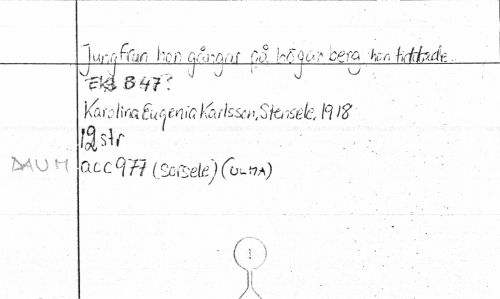 Jungfrun hon gångar på högan berg hon tittade
EKS B 47?
Karolina Eugenia Karlsson, Stensele, 1918
12 str
DAUM acc 977 (Sorsele) (ULMA)
1